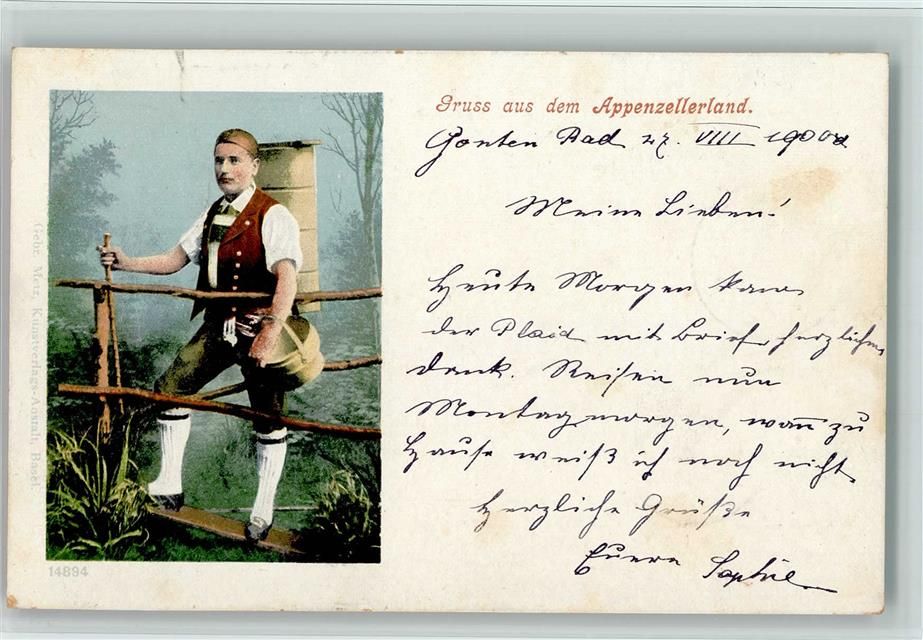 Gruss aus dem Appenzellerland.
Gonten Bad 27. VIII 1900
Meine Lieben!
Heute Morgen kam
der Plaid mit Brief, herzlichen
Dank. Reisen nun
Montagmorgen, wann zu
Hause weiß ich noch nicht
Herzliche Grüße
Euere Sophie
Gebr. Metz, Kunstverlags-Anstalt, Basel.
14894